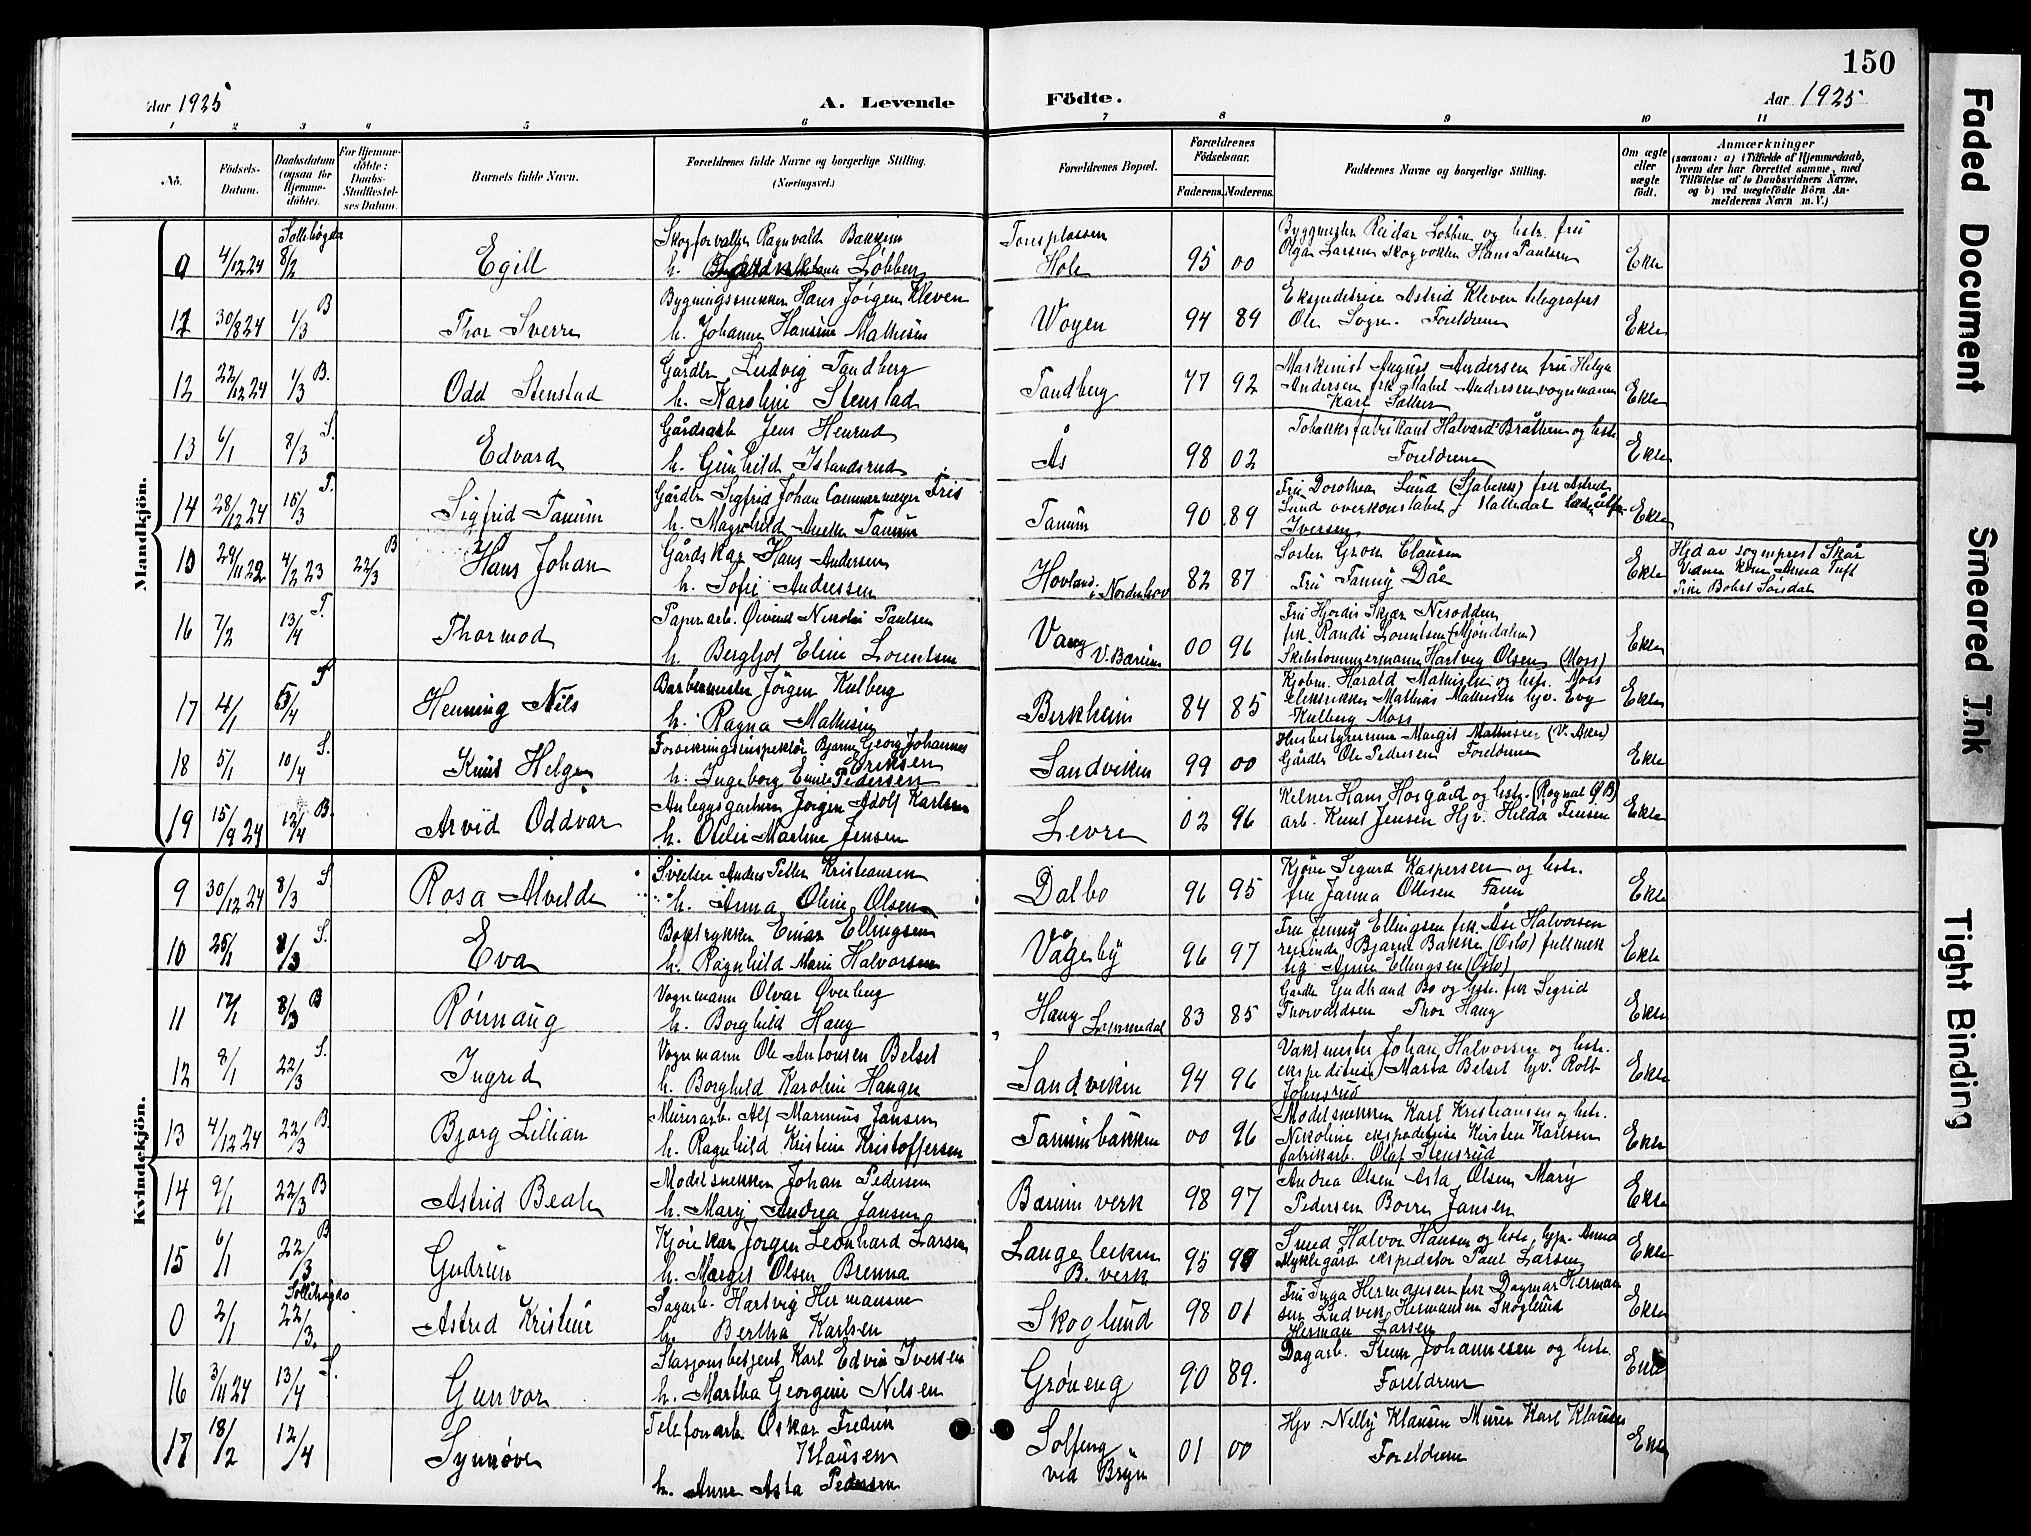 150
Aar 1925
A. Levende
Födte.
Aar 1925
1 2 3 4 5 6 7 8 9 10 11
No. Födsels-Datum. Daabsdatum (ogsaa for Hjemme-döbte). For Hjemme-döbte: Daabs-Stadfæstel-ses Datum. Barnets fulde Navn. Forældrenes fulde Navne og borgerlige Stilling. (Næringsvei.) Forældrenes Bopæl. Forældrenes Födselsaar. Faderens. Moderens. Faddernes Navne og borgerlige Stilling. Om ægte eller uægte födt. Anmærkninger (saasom: a) i Tilfælde af Hjemmedaab, hvem der har forrettet samme, med Tilföielse af to Daabsvidners Navne, og b) ved uægtefödte Börn An-melderens Navn m. V.)
Mandkjön.
9 4/12 24 Sollihøgda 8/2 Egill Skogforvalter Ragnvald Bakkim
h. Løbben Hole 95 00 Byggmester Reidar Løbben og hstr. fru
Olga Larsen Skogvokter Hans Paulsen Ekte
30/8 24 1/3 B Thor Sverre Bygningssnekker Hans Jörgen Kleven
h. Johanne Hansine Mathisen Woyen 94 89 Ekspeditrise Astrid Kleven telegrafist
Ole Sogn. Foreldrene Ekte
12 22/12 24 1/3 B. Odd Stenstad Gårdbr Ludvig Tandberg
h. Karoline Stenstad Tandberg 77 92 Maskinist August Andersen fru Helga
Andersen frk Mabel Andersen vognmann
Karl Sather Ekte
13 6/1 8/3 S. Edvard Gårdsarb Jens Henrud
h. Gunhild Islandsrud Ås 98 02 Tobakksfabrikant Halvard Bråthen og hstr.
Foreldrene Ekte
14 28/12 24 15/3 T. Sigfrid Tanum Gårdbr Sigfrid Johan Cammermeyer Friis
h. Magnhild Tanum Tanum 90 89 Fru Dorothea Lund (Stabekk) frk Astrid
Lund overkonstabel
Iversen Ekte
29/11 22 4/2 23 22/3 B Hans Johan Gårdskar Hans Andersen
h. Sofie Andressen Hovland i Norderhov 82 87 Søster Groen Clausen
Fru Fanny Dåe Ekte Hjd av sogneprest Skår
Vidner Anna Tuft
16 7/2 13/4 T. Thormod Papirarb. Øivind Nikolai Paulsen
h. Bergljot Eline Lorentsen Vang V. Bærum 00 96 Fru Hjordis Skjær Nesodden
frk. Randi Lorentsen (Mjøndalen)
Skibstømmermann Hartvig Olsen (Moss) Ekte
17 4/1 5/4 T Henning Nils Barbermester Jörgen Kulberg
h. Ragna Mathisen Berkheim 84 85 Kjøbm. Harald Mathisen og hstr. Moss
elektrikker Mathias Mathisen hjv. Evy
Kulberg Moss Ekte
18 5/1 10/4 S. Knut Helge Forsikringsinspektör Bjarne Georg Johannes
Eriksen
h. Ingeborg Emilie Pedersen Sandviken 99 00 Husbestyrerinne Margit Mathisen (V. Aker)
Gårdbr Ole Pedersen Foreldrene Ekte
19 15/9 24 12/4 B. Arvid Oddvar Anleggsgartner Jørgen Adolf Karlsen
h. Martine Jensen Levre 02 96 Kelner Hans Horgård og hstr.
arb. Knut Jensen Hjv. Hilda Jensen Ekte
Kvindekjön.
9 30/12 24 8/3 S. Rosa Alvilde Sveiser Anders Petter Kristiansen
h. Anna Oline Olsen Dalbo 96 95 Kjøre Sigurd Kaspersen og hstr.
fru Janna Ottesen Ekte
10 25/1 8/3 S. Eva Boktrykker Einar Ellingsen
h. Ragnhild Marie Halvorsen Vågeby 96 97 Fru Jenny Ellingsen frk. Åse Halvorsen
reisende Bjarne Bakke (Oslo) fullmek
tig Arne Ellingsen (Oslo) Ekte
11 17/1 8/3 B Rönnaug Vognmann Olvar Øverberg
h. Borghild Haug Haug Lommedal 83 85 Gårdbr Gudbrand Bø og hstr. frk Sigrid
Thorvaldsen Thor Haug Ekte
12 8/1 22/3 S. Ingrid Vognmann Ole Antonsen Belset
h. Borghild Karoline Hauger Sandviken 94 96 Vaktmester Johan Halvorsen og hstr.
ekspeditrise Marta Belset hjv. Rolf
Johnsrud Ekte
13 4/12 24 22/3 B. Bjørg Lillian Murerarb. Alf Marinius Jansen
h. Ragnhild Kristine Kristoffersen Tanumbakken 00 96 Modelsnekker Karl Kristiansen og hstr.
Nikoline ekspeditrise Kirsten Karlsen
fabrikarb. Olaf Stensrud Ekte
14 9/1 22/3 B Astrid Beate Modelsnekker Johan Pedersen
h. Mary Andrea Jansen Bærum verk 98 97 Andrea Olsen Asta Olsen Mary
Pedersen Borre Jansen Ekte
15 6/1 22/3 B Gudrun Kjørekar Jørgen Leonhard Larsen
h. Margit Olsen Brenna Langeleiken B. verk 95 99 Smed Halvor Hansen og hstr. hjv. Anna
Myklegård ekspeditör Paul Larsen Ekte
0 2/1 Sollihøgda 22/3. Astrid Kristine Sagarb. Hartvig Hermansen
h. Bertha Karlsen Skoglund 98 01 Fru Inga Hermansen frk Dagmar Herman
sen Ludvik Hermansen Skoglund
Herman Larsen Ekte
16 3/11 24 13/4 S. Gunvor Stasjonsbetjent Karl Edvin Iversen
h. Martha Georgine Nilsen Grøneng 90 89. Dagarb. Johannesen og hstr.
Foreldrene Ekte
17 18/2 12/4 Synnøve Telefonarb Oskar Fredrin
Klausen
h. Anne Asta Pedersen Solfeng ved Bryn 01 00 Hjv. Nelly Klausen Murer Karl Klausen
Foreldrene Ekte
Faded Document
Smeared Ink
Tight Binding